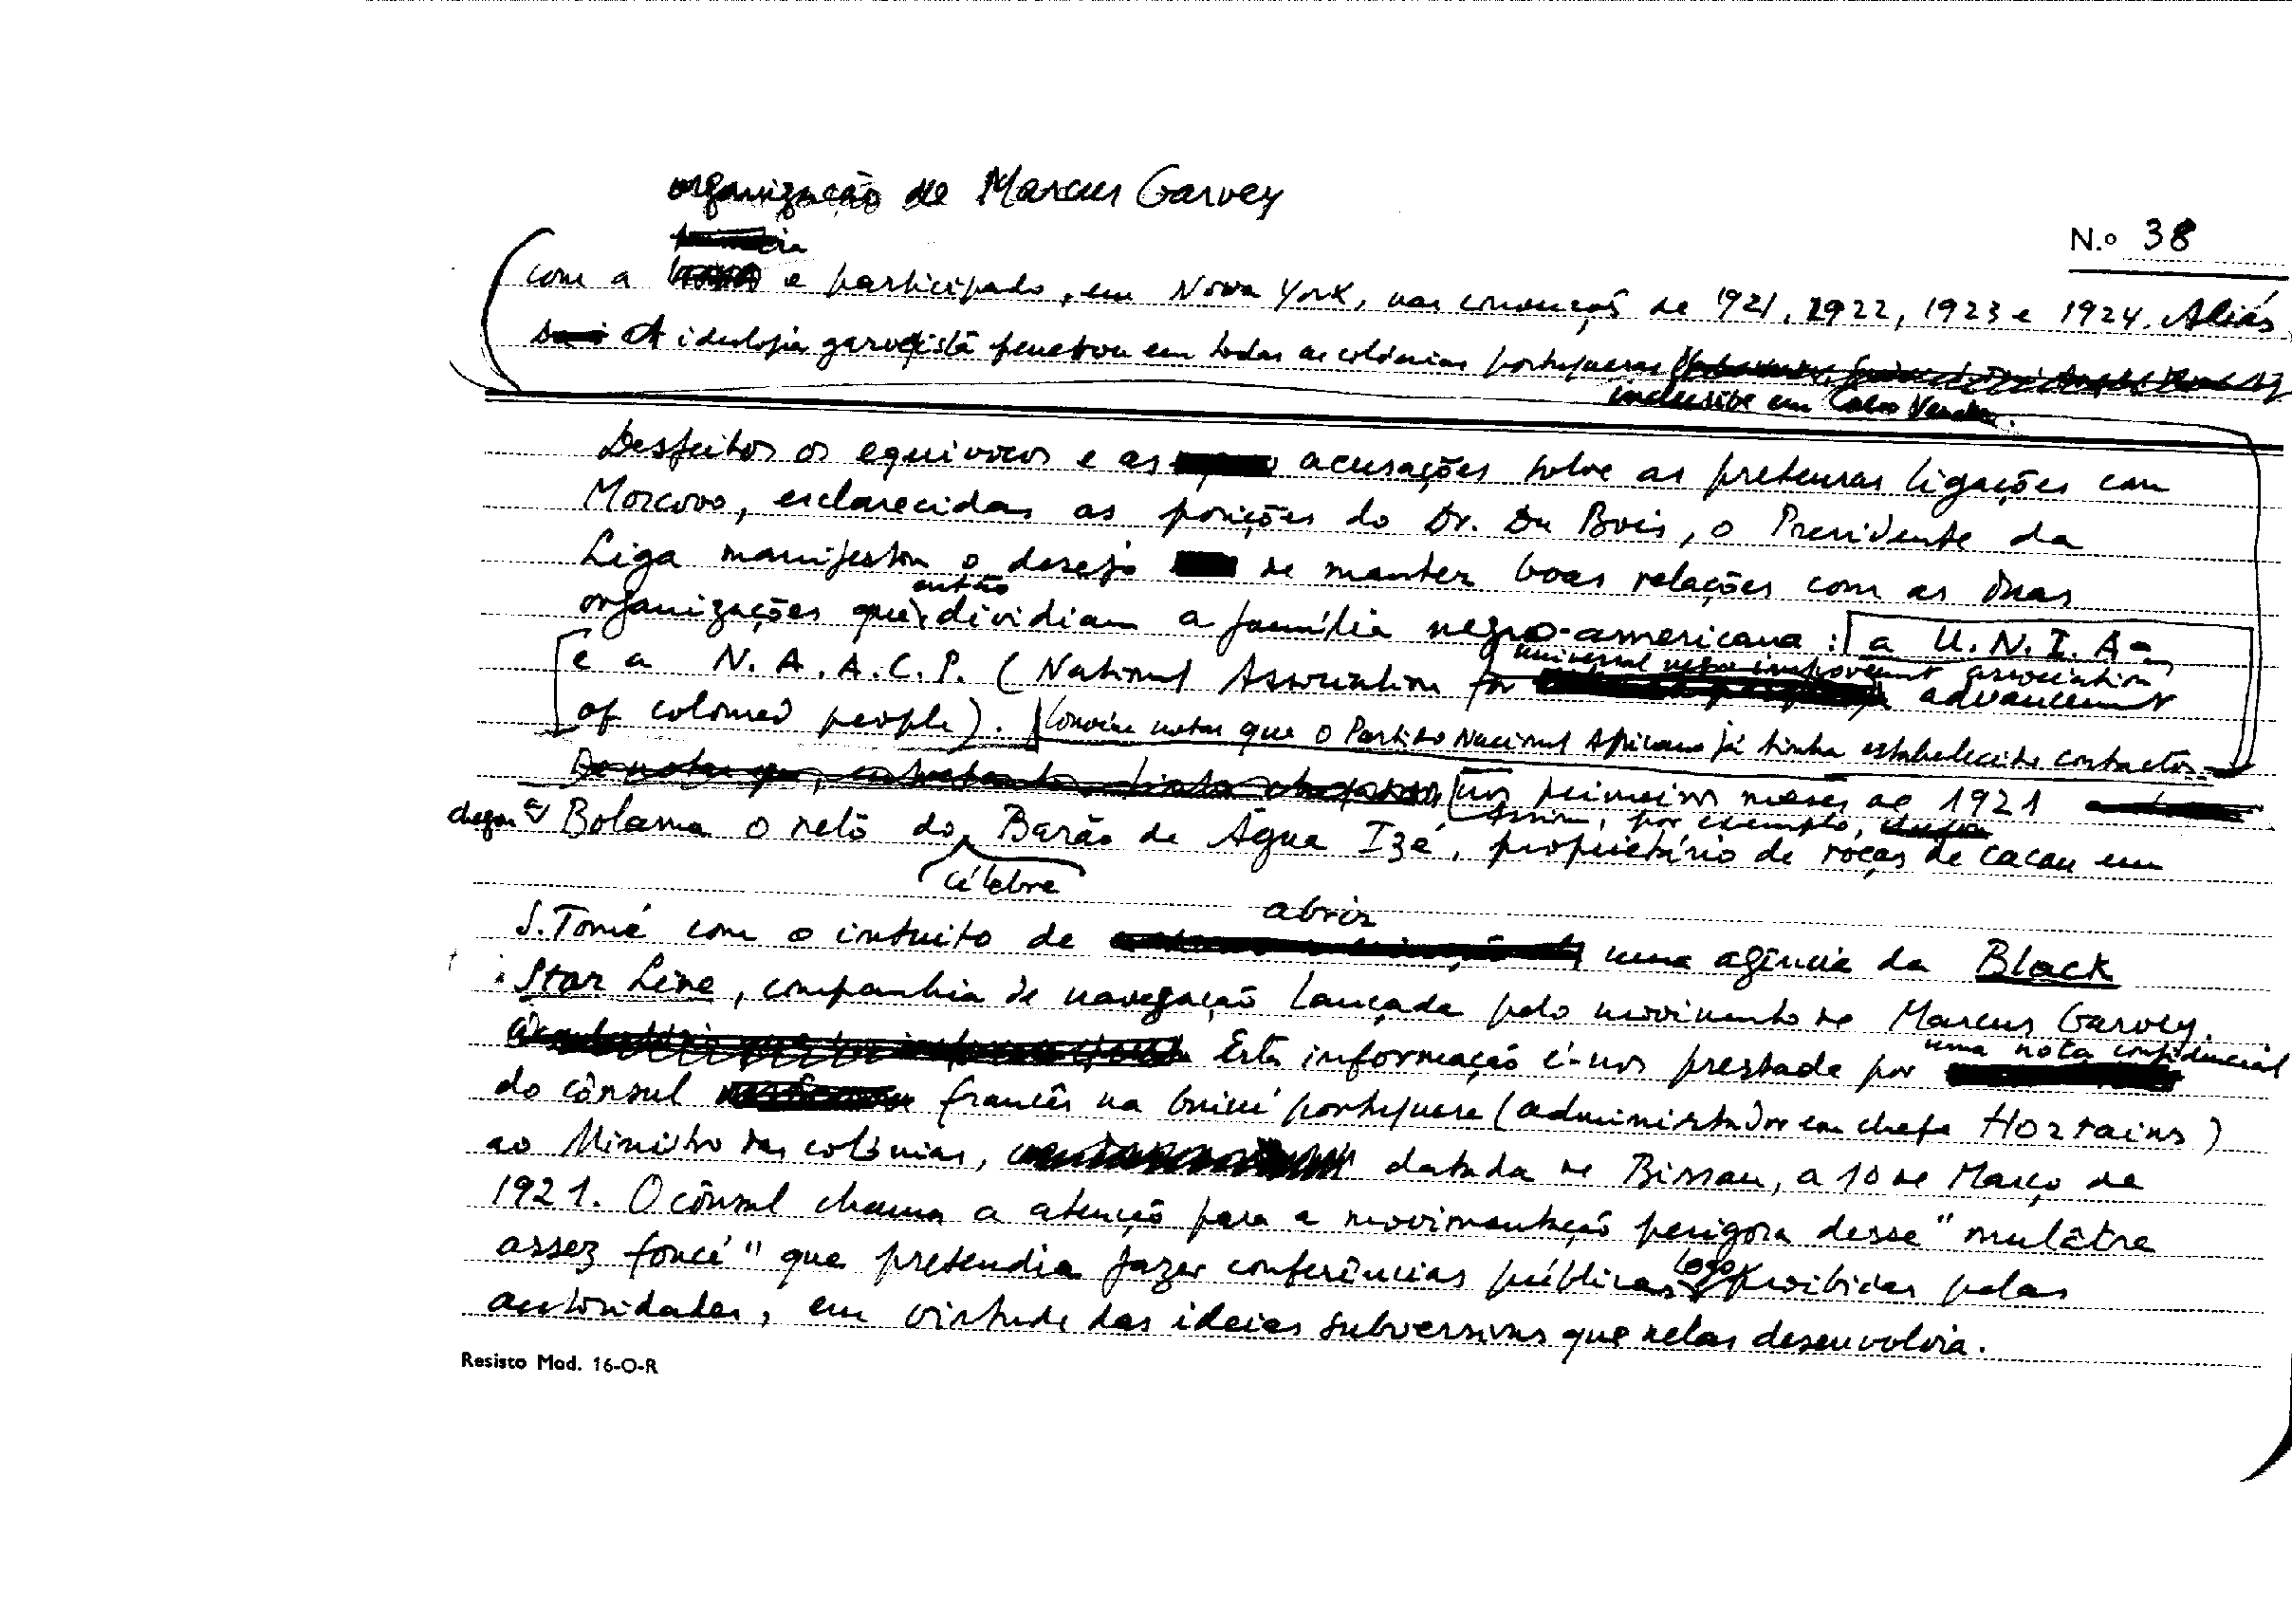 organização de Marcus Garvey
N.º 38
com a e participado, em Nova York, nas convenções de 1921, 1922, 1923 e 1924. Aliás,
A ideologia garveyista penetrou em todas as colónias portuguesas
inclusive em Cabo Verde.
Desfeitos os equívocos e as acusações sobre as pretensas ligações com
Moscovo, esclarecidas as posições do Dr. Du Bois, o Presidente da
Liga manifestou o desejo de manter boas relações com as duas
então
organizações que dividiam a família negro-americana : a U.N.I.A-
universal negro improvement association
e a N.A.A.C.P. (National Association for advancement
of coloured people). Convém notar que o Partido Nacional Africano já tinha estabelecido contactos
nos primeiros meses de 1921
Assim, por exemplo,
chegou a Bolama o neto do Barão de Água Izé, proprietário de roças de cacau em
célebre
abrir
S. Tomé com o intuito de uma agência da Black
Star Line, companhia de navegação lançada pelo movimento de Marcus Garvey.
Esta informação é-nos prestada por
uma nota confidencial
do cônsul francês na Guiné portuguesa (administrador em chefe Hostains)
ao Ministro das colónias, datada de Bissau, a 10 de Março de
1921. O cônsul chama a atenção para a movimentação perigosa desse "mulâtre
assez foncé" que pretendia fazer conferências públicas logo proibidas pelas
autoridades, em virtude das ideias subversivas que nelas desenvolvia.
Resisto Mod. 16-O-R